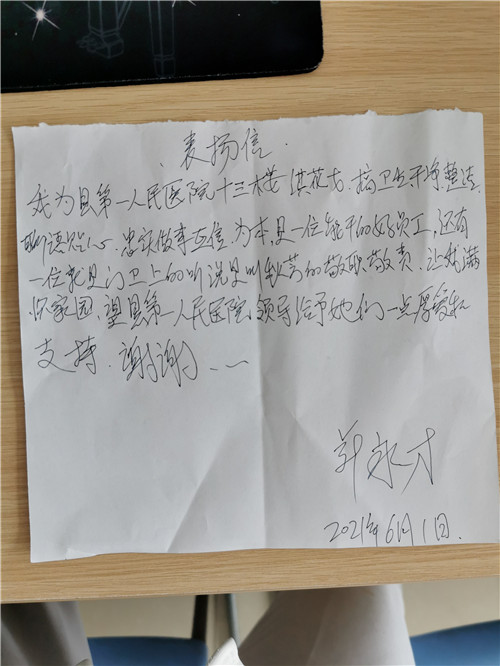 表扬信
我为县第一人民医院十三楼洪花古,搞卫生干净整洁
聊语贴心.忠诚做事正信为本,是一位能干的好员工,还有
一位就是门卫上的听说是叫的敬职敬责.让我满
怀家园.望县第一人民医院领导给予她们一点厚爱和
支持.谢谢...
永才
2021年6月1日.